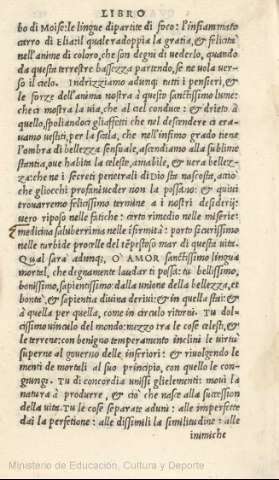 LIBRO
bo di Moise: le lingue dipartite di foco: l'infiammato
carro di Elia: il quale radoppia la gratia, & felicità
nell'anime di coloro, che son degni di uederlo, quando
da questa terrestre bassezza partendo, se ne uola uer-
so il cielo. Indrizziamo adunq; tutti i pensieri, &
le forze dell'anima nostra à questo sanctissimo lume:
che ci mostra la uia, che al ciel conduce: & drieto à
quello, spoliandoci gli affetti che nel descendere ci era-
uamo uestiti, per la scala, che nell'infimo grado tiene
l'ombra di bellezza sensuale, ascendiamo alla sublime
stantia, oue habita la celeste, amabile, & uera bellez-
za: che ne i secreti penetrali di Dio sta nascosta, acciò
che gliocchi profani ueder non la possano: & quiui
trouarremo felicissimo termine a i nostri desiderij:
uero riposo nelle fatiche: certo rimedio nelle miserie:
medicina saluberrima nelle ifirmità: porto securissimo
nelle turbide procelle del tépestoso mar di questa uita.
Qual sarà adunq;, O AMOR sanctissimo lingua
mortal, che degnamente laudar ti possa: tu bellissimo,
bonissimo, sapientissimo: dalla unione della bellezza, et
bontà, & sapientia diuina deriui: & in quella stai: &
à quella per quella, come in circulo ritorni. Tu dol-
cissimo uinculo del mondo: mezzo tra le cose celesti, &
le terrene: con benigno temperamento inclini le uirtù
superne al gouerno delle inferiori: & riuolgendo le
menti de mortali al suo principio, con quello le con-
giungi. Tu di concordia unisci gli elementi: moui la
natura à produrre, & ciò che nasce alla succession
della uita. Tu le cose separate aduni: alle imperfette
dai la perfetione: alle dissimili la similitudine: alle
inimiche
Ministerio de Educación, Cultura y Deporte